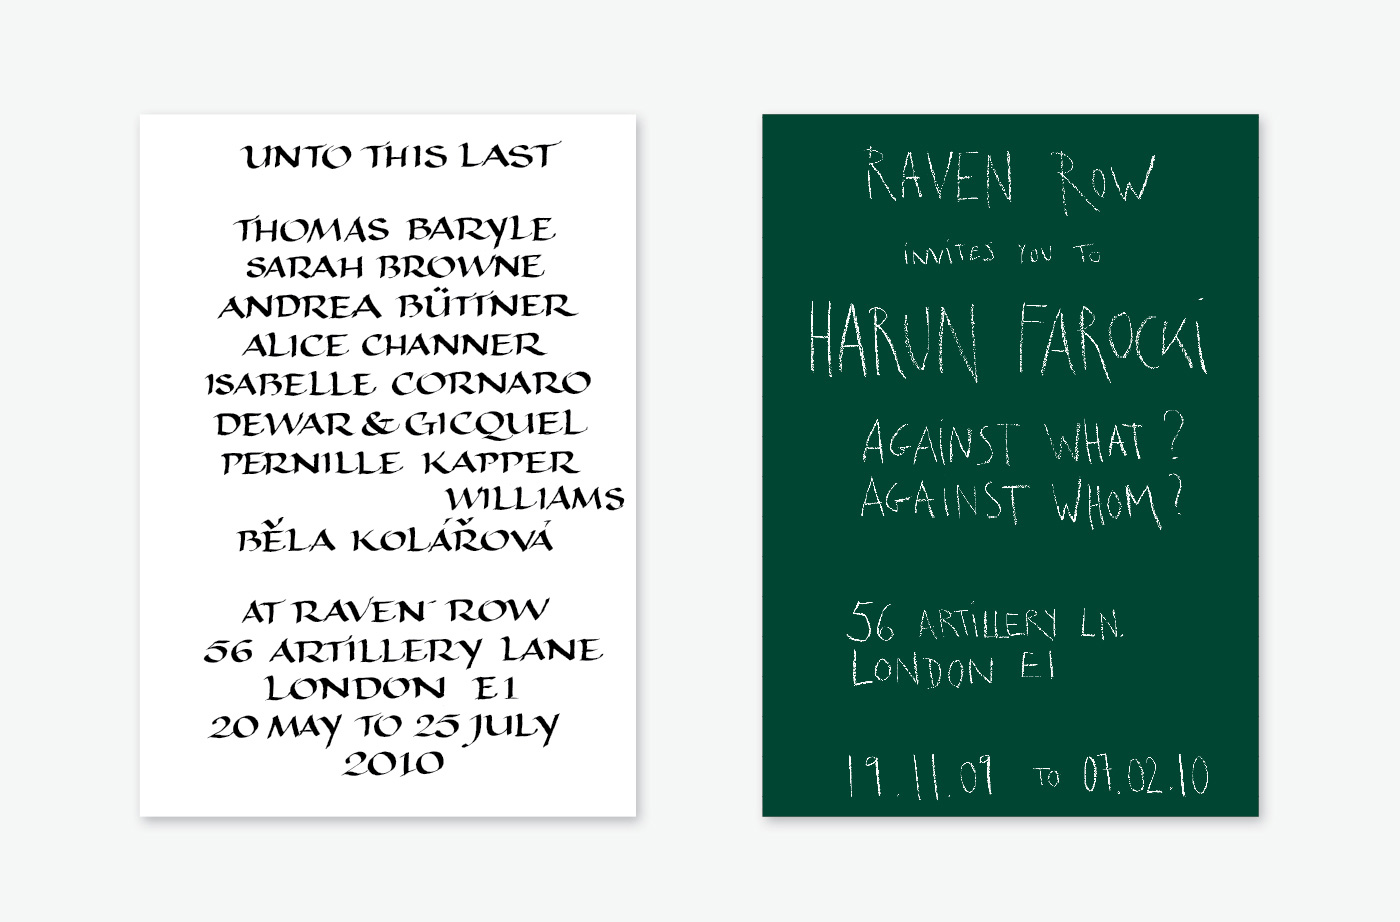 UNTO THIS LAST
THOMAS BARYLE
SARAH BROWNE
ANDREA BÜTTNER
ALICE CHANNER
ISABELLE CORNARO
DEWAR & GICQUEL
PERNILLE KAPPER
WILLIAMS
BĚLA KOLÁŘOVÁ
AT RAVEN ROW
56 ARTILLERY LANE
LONDON E1
20 MAY TO 25 JULY
2010
RAVEN ROW
INVITES YOU TO
HARUN FAROCKI
AGAINST WHAT?
AGAINST WHOM?
56 ARTILLERY LN.
LONDON E1
19.11.09 TO 07.02.10